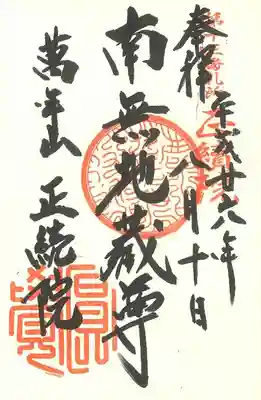 奉拝
平成廿六年
八月十日
南無地蔵尊
萬年山 正続院